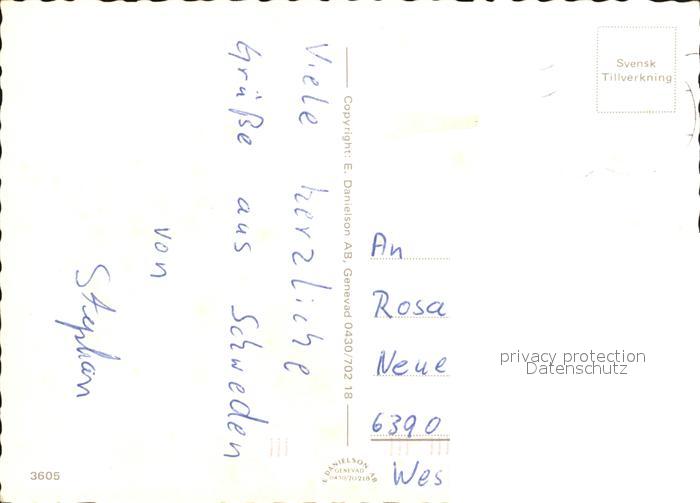 Viele herzliche
Grüße aus Schweden
von
Stephan
Copyright: E. Danielson AB, Genevad 0430/702 18
Svensk
Tillverkning
An
Rosa
Neue
6390
Wes
privacy protection
Datenschutz
E. DANIELSON AB
GENEVAD
0430/70218
3605